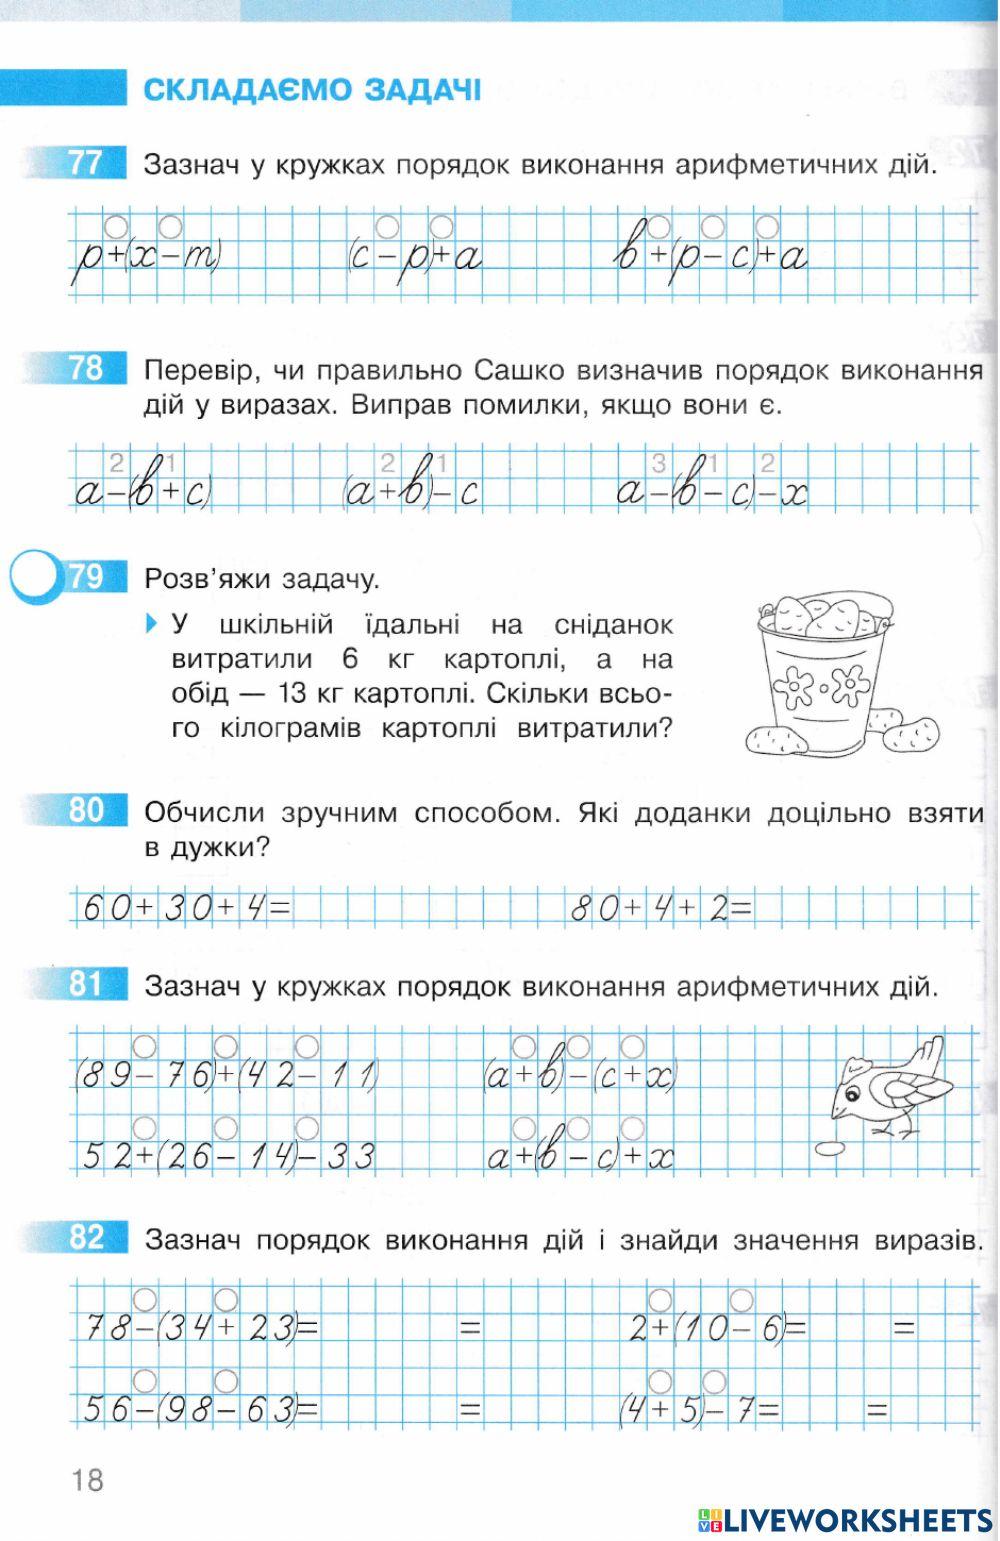 СКЛАДАЄМО ЗАДАЧІ
77 Зазнач у кружках порядок виконання арифметичних дій.
p+(x−m) (c−p)+a в+(p−c)+a
78 Перевір, чи правильно Сашко визначив порядок виконання
дій у виразах. Виправ помилки, якщо вони є.
2 1 2 1 3 1 2
a−(в+c) (a+в)−c a−(в−c)−x
79 Розв'яжи задачу.
У шкільній їдальні на сніданок
витратили 6 кг картоплі, а на
обід — 13 кг картоплі. Скільки всьо-
го кілограмів картоплі витратили?
80 Обчисли зручним способом. Які доданки доцільно взяти
в дужки?
60+30+4= 80+4+2=
81 Зазнач у кружках порядок виконання арифметичних дій.
(89−76)+(42−11) (a+в)−(c+x)
52+(26−14)−33 a+(в−c)+x
82 Зазнач порядок виконання дій і знайди значення виразів.
78−(34+23)= = 2+(10−6)= =
56−(98−63)= = (4+5)−7= =
18
LIVEWORKSHEETS